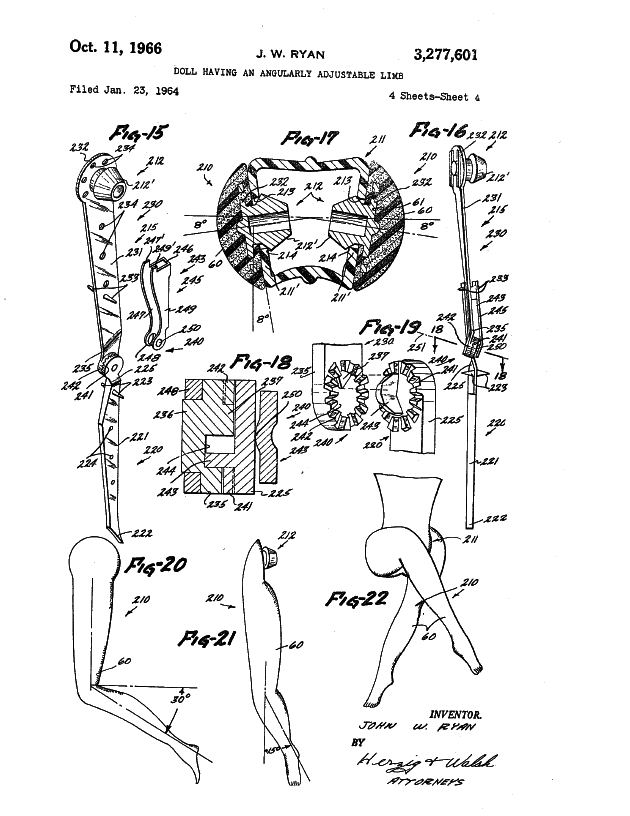 Oct. 11, 1966
J. W. RYAN
3,277,601
DOLL HAVING AN ANGULARLY ADJUSTABLE LIMB
Filed Jan. 23, 1964
4 Sheets-Sheet 4
FIG-15
232
234
212
212'
234
230
215
247
249
246
231
243
233
245
247
249
250
248
240
235
226
242
241
223
221
220
224
222
FIG-17
211
210
232
213
212
213
232
210
61
60
8°
8°
60
214
212'
214
211'
211'
8°
FIG-16
232
212
212'
231
215
230
233
243
245
242
18
235
241
250
251
240
18
226
223
220
221
222
FIG-18
242
237
248
250
236
240
244
243
243
235
241
225
FIG-19
230
237
235
241
226
240
244
242
243
225
240
220
FIG-20
210
60
30°
FIG-21
212
210
60
FIG-22
211
210
60
INVENTOR.
JOHN W. RYAN
BY
Herzig & Walsh
ATTORNEYS